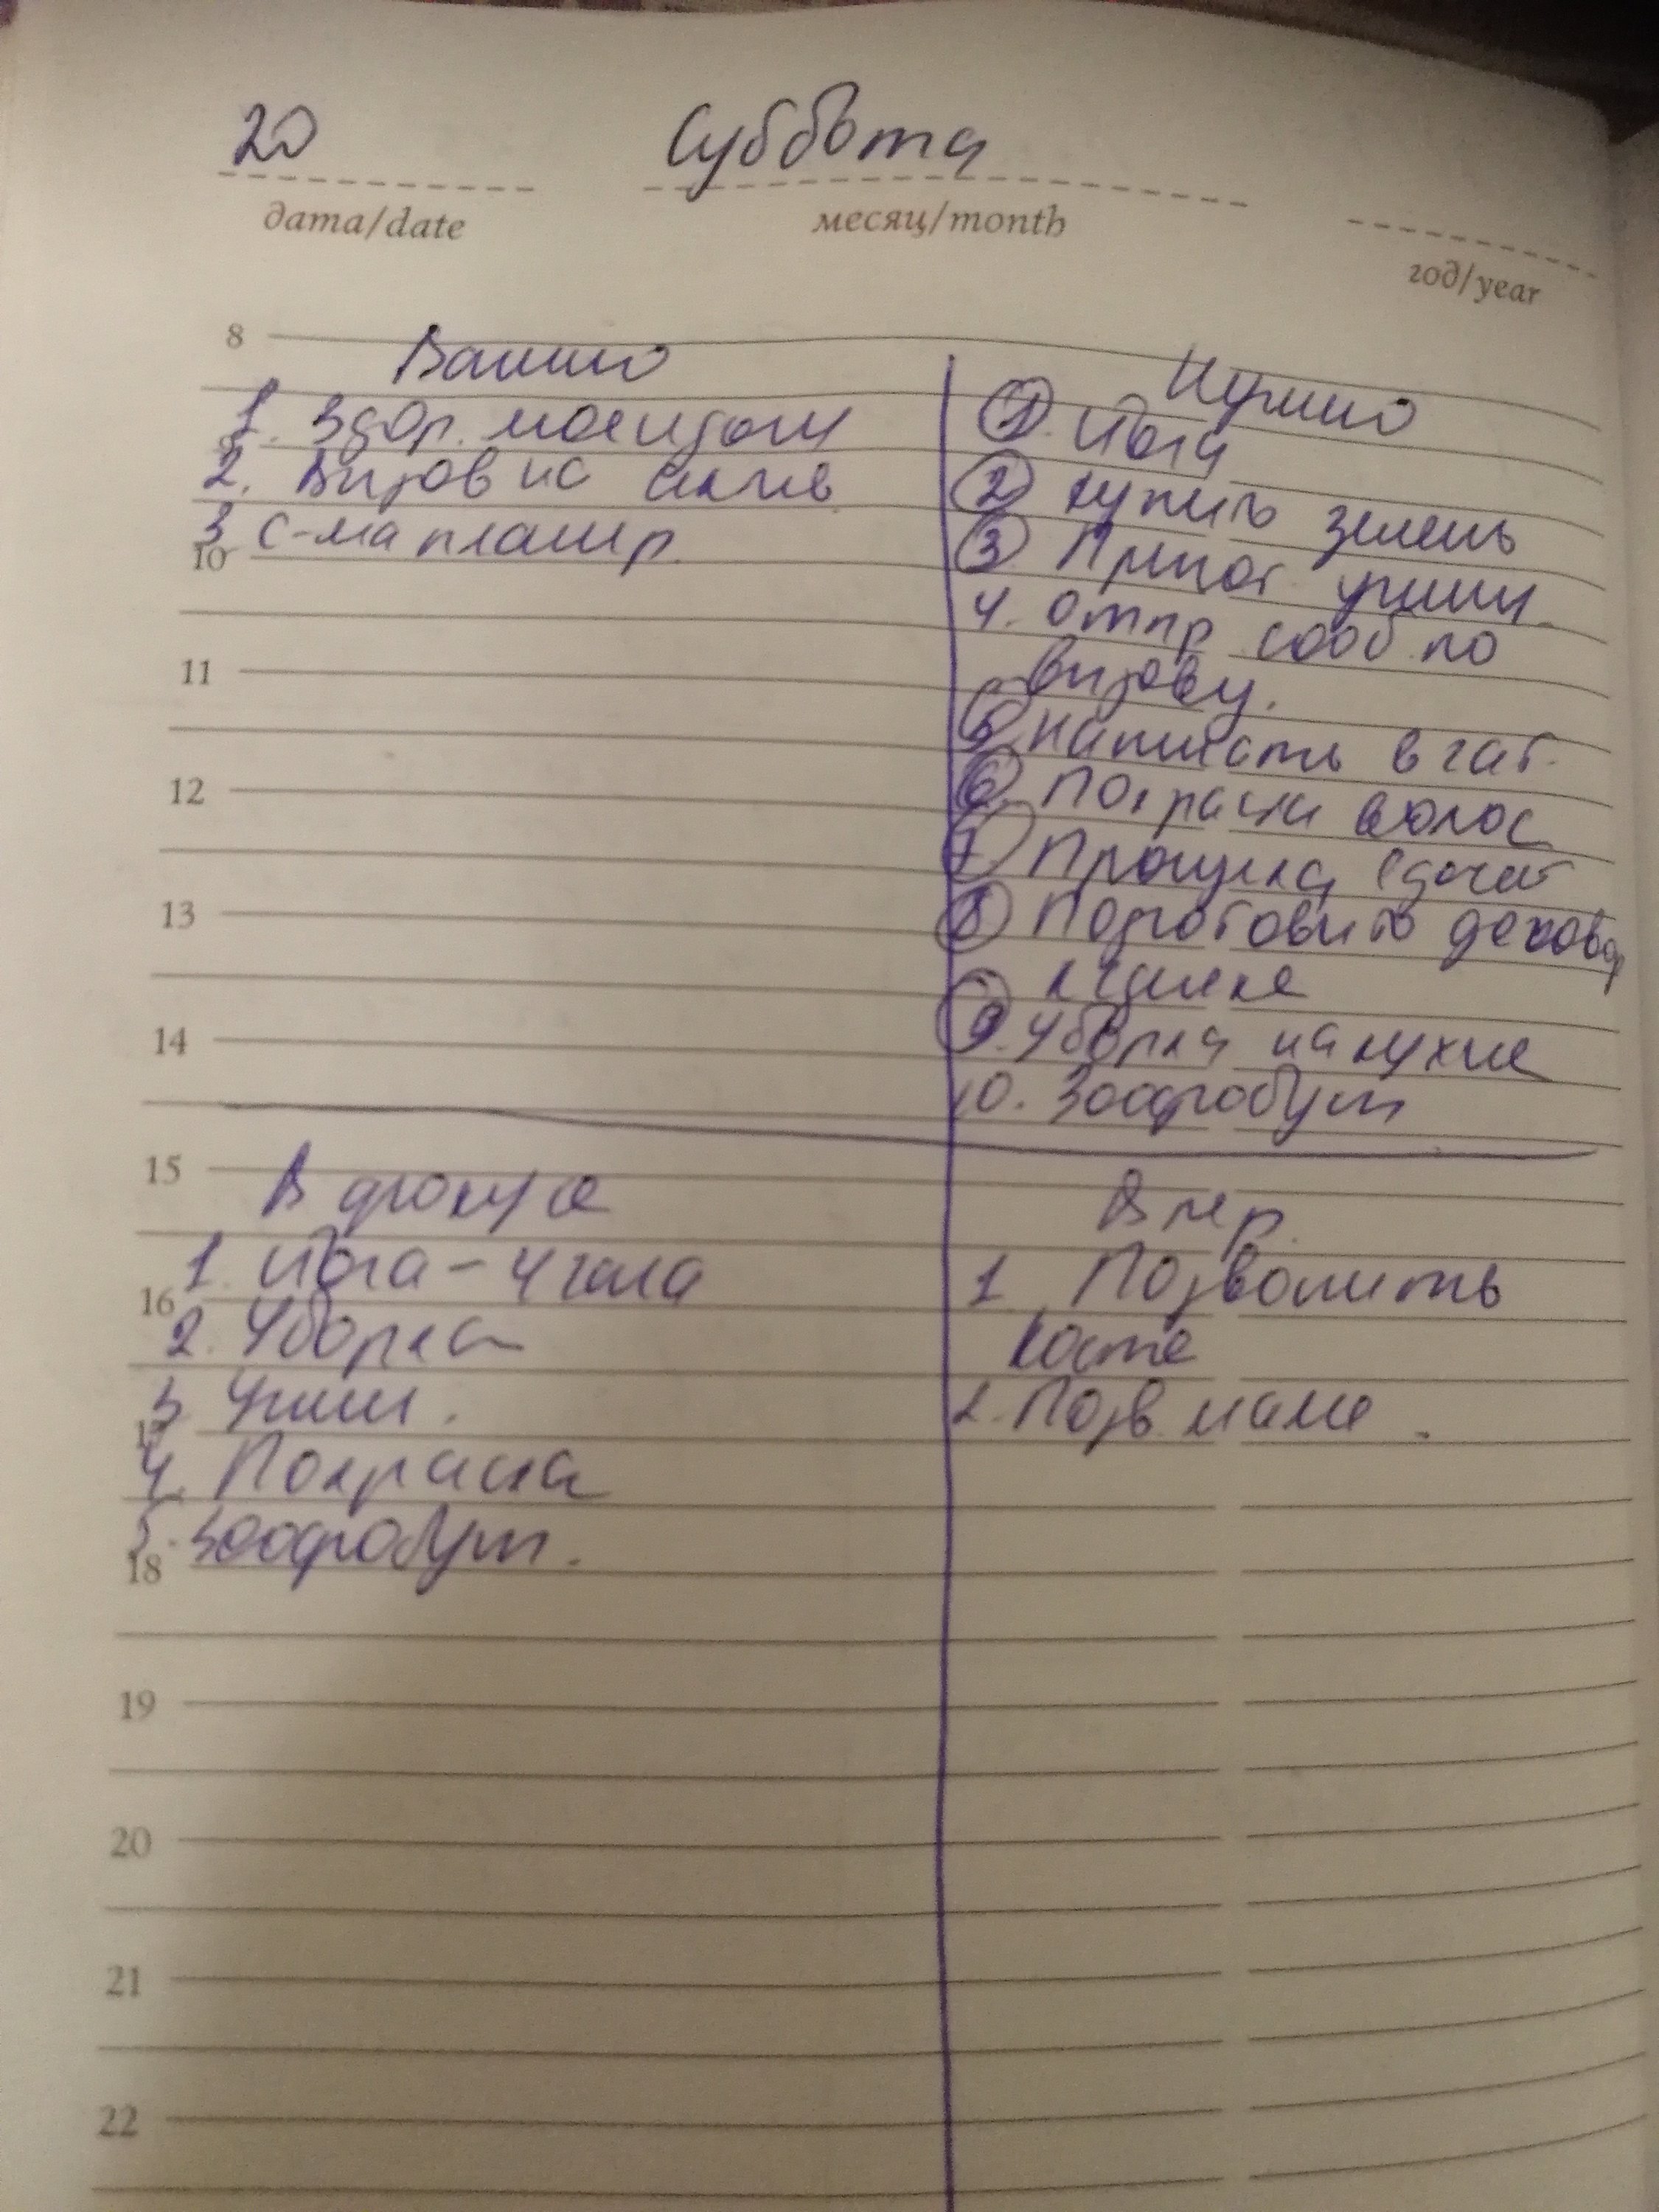 20 Суббота
дата/date месяц/month год/year
8
Важно
1. Здор. моей дочи
2. Вызов на
3 с-ма планир.
10
11
12
13
14
Нужно
1. Йога
2. Купить зелень
3. Пригот ужин
4. Отпр. сооб. по
вызову.
5. Написать в чат.
6. Покраска волос
7. Прогулка с дочей
8. Подготовить договор
к сделке
9. Уборка на кухне
10. Зоофробум
15
В фокусе
1. Йога - 4 часа
16
2. Уборка
3 Ужин.
17
4. Покраска
5. Зоофробум.
18
В пер.
1 Позвонить
Косте
2. Позв маме.
19
20
21
22